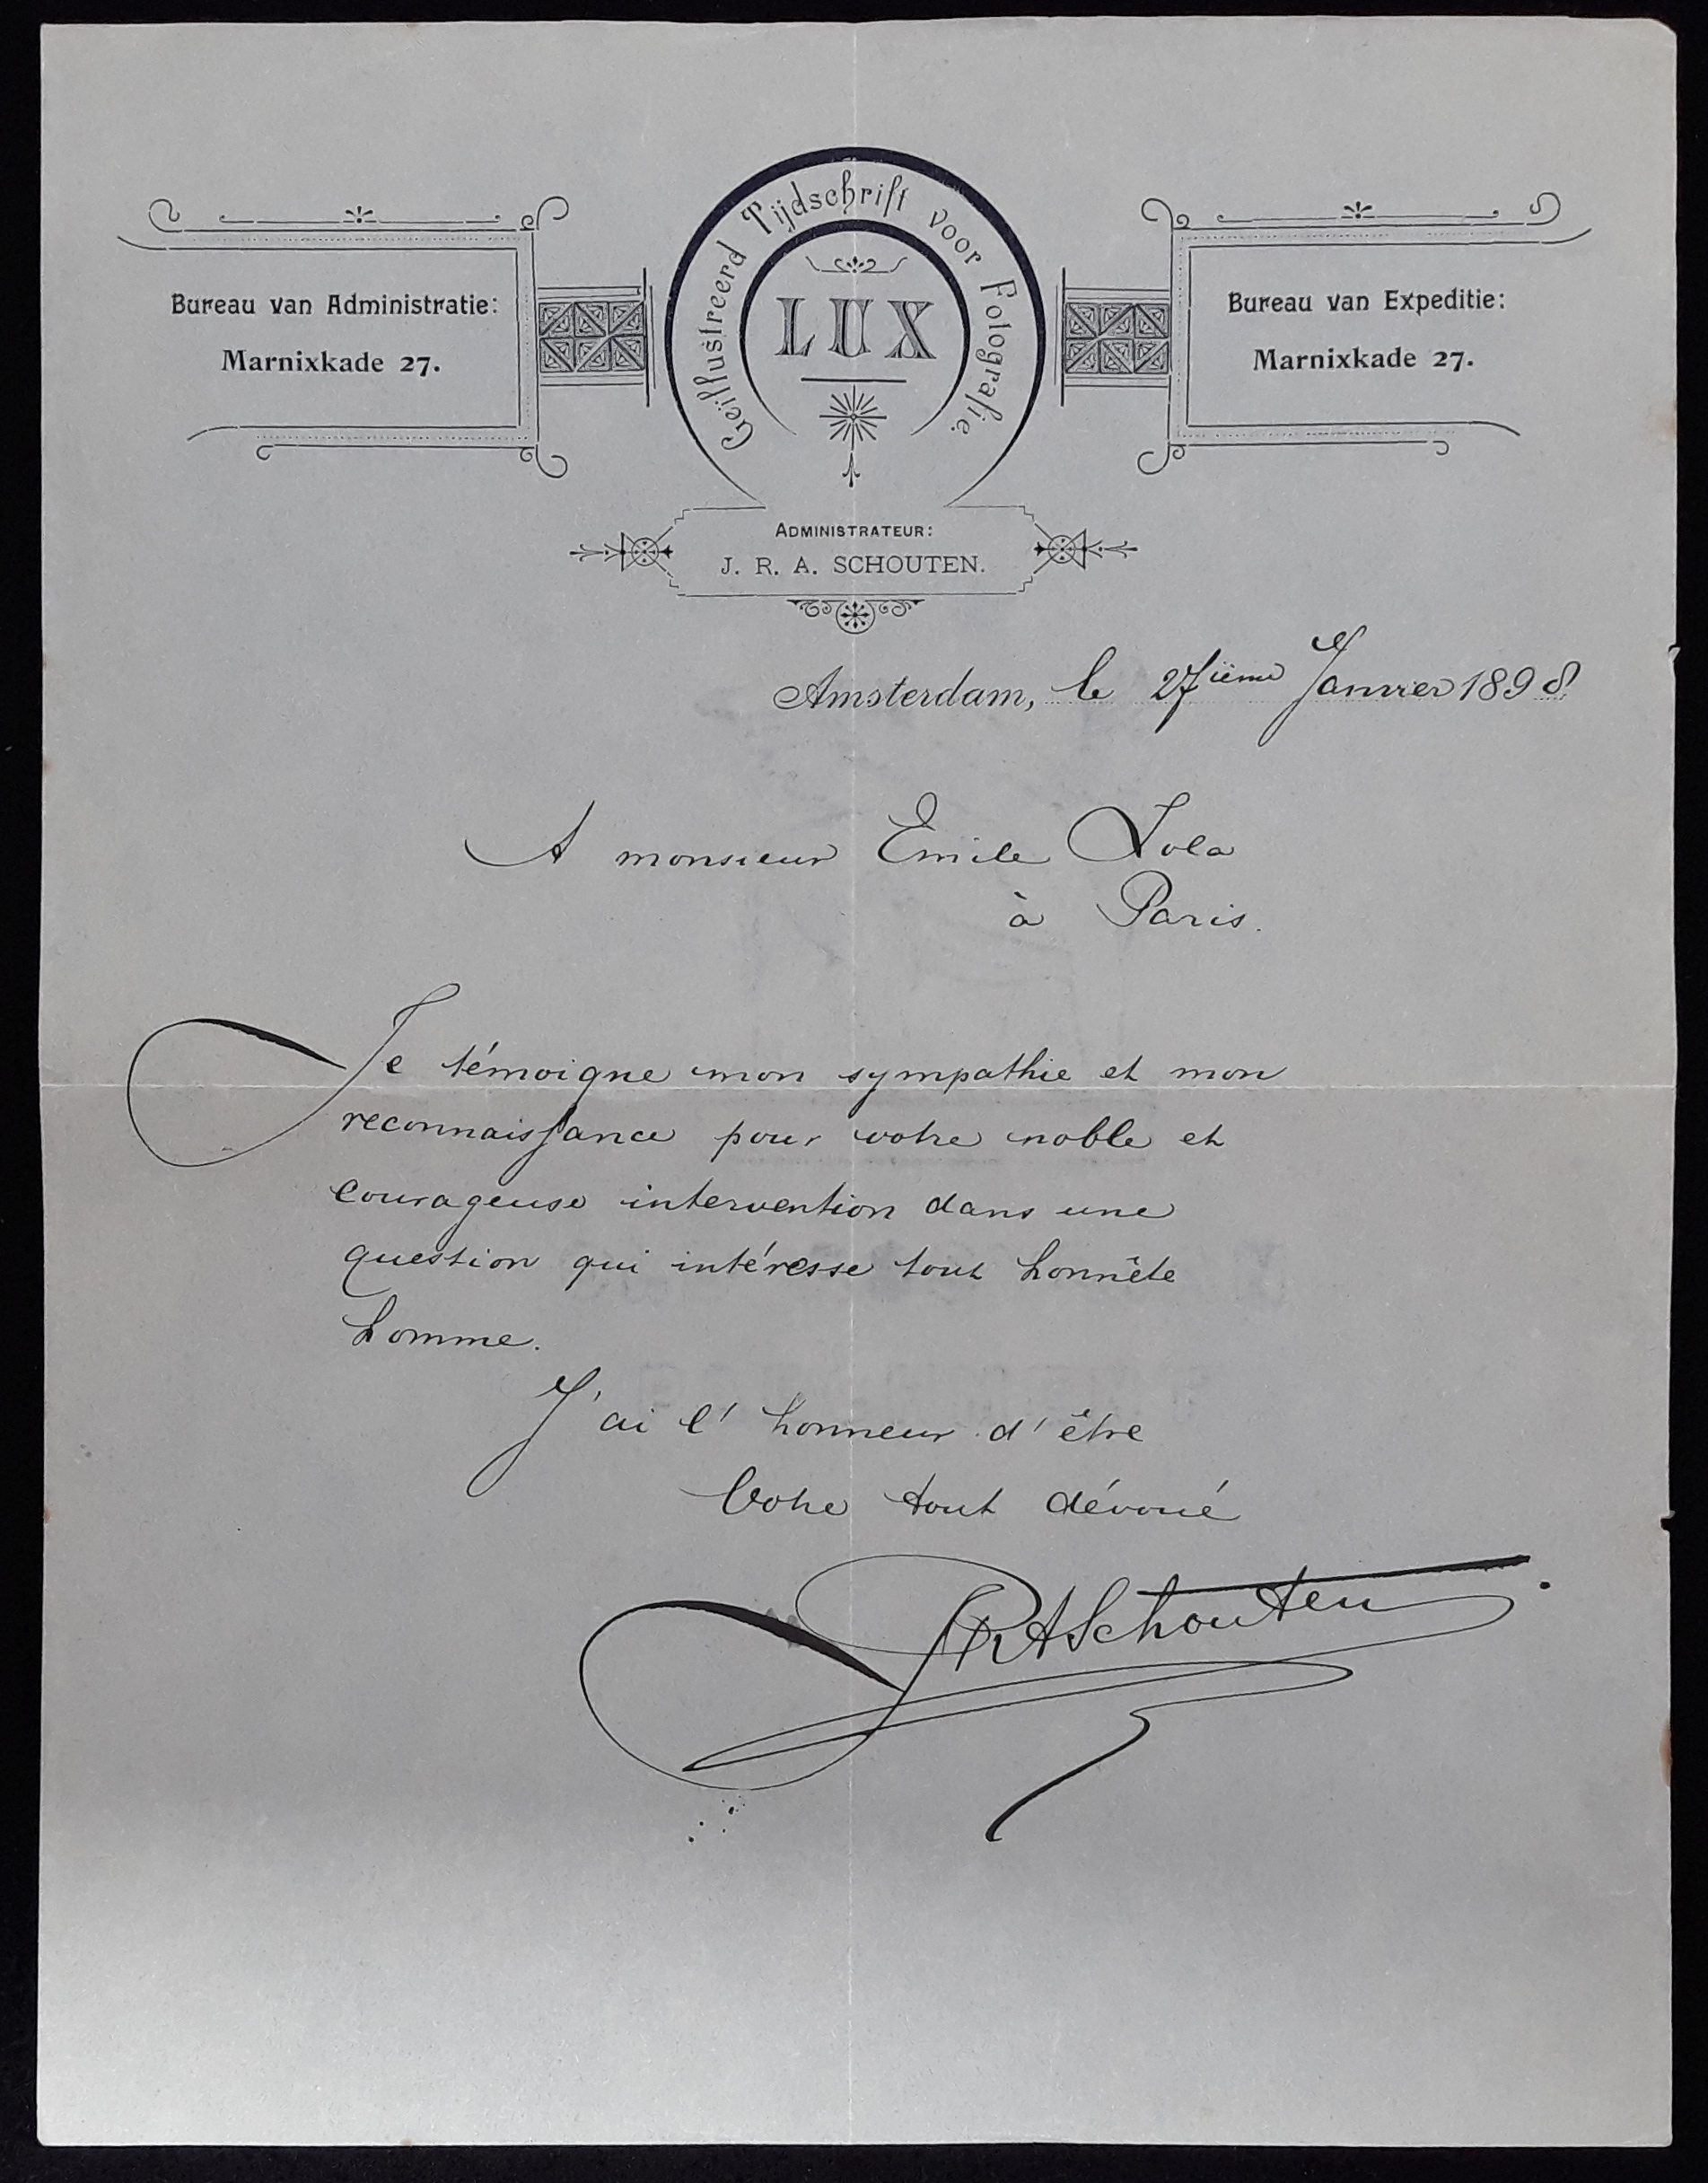 Geïllustreerd Tijdschrift voor Fotografie
LUX
Bureau van Administratie:
Marnixkade 27.
Bureau van Expeditie:
Marnixkade 27.
ADMINISTRATEUR:
J. R. A. SCHOUTEN.
Amsterdam, le 27ième Janvier 1898
A monsieur Emile Zola
à Paris.
Je témoigne mon sympathie et mon
reconnaissance pour votre noble et
courageuse intervention dans une
question qui intéresse tout honnête
homme.
J'ai l'honneur d'être
Votre tout dévoué
JRASchouten.